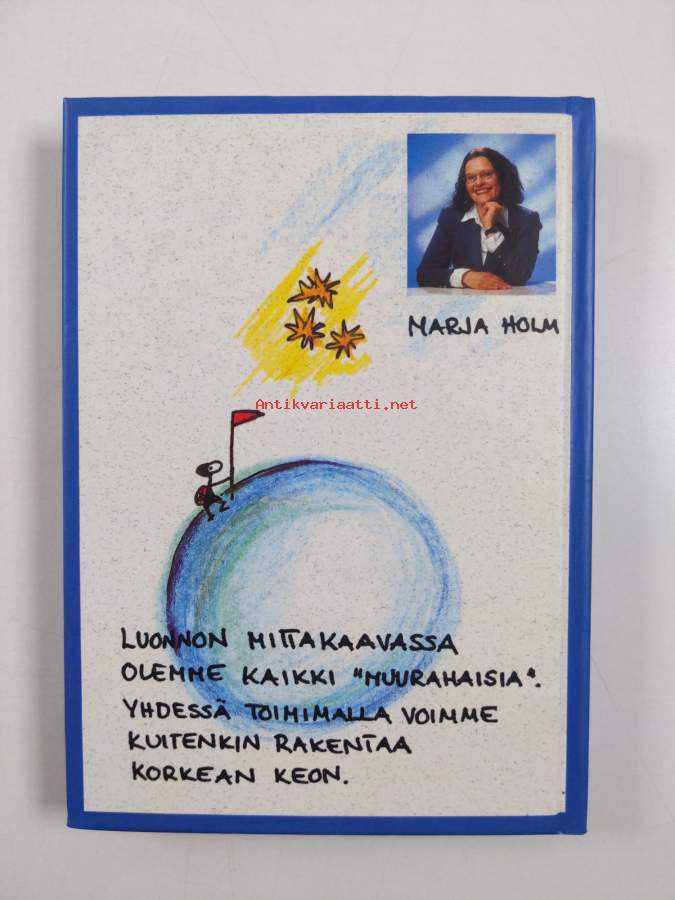 MARJA HOLM
Antikvariaatti.net
LUONNON MITTAKAAVASSA
OLEMME KAIKKI "MUURAHAISIA".
YHDESSÄ TOIMIMALLA VOIMME
KUITENKIN RAKENTAA
KORKEAN KEON.